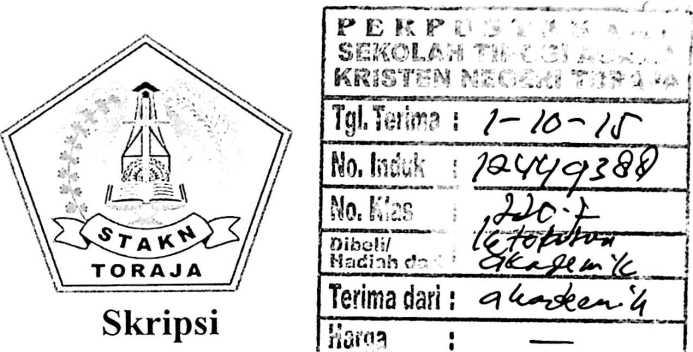 STAKN
TORAJA
Skripsi
PERPUSTAKAAN
SEKOLAH TINGGI AGAMA
KRISTEN NEGERI TORAJA
Tgl. Terima : 1-10-15
No. Induk : 12449388
No. Klas : 220.7
Dibeli/
Hadiah dari :
akademik
Terima dari : akademik
Harga : —